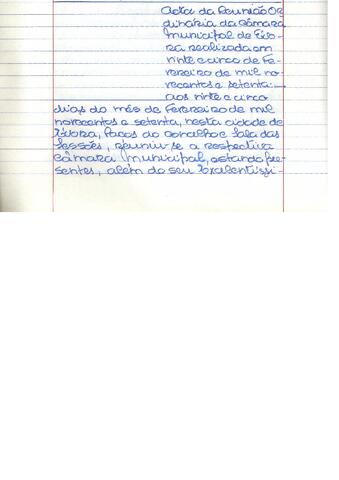 Acta da Reunião Or
dinária da Câmara
Municipal de Évo-
ra realizada em
vinte e cinco de Fe-
vereiro de mil no-
vecentos e setenta:—
Aos vinte e cinco
dias do mês de Fevereiro de mil
novecentos e setenta, nesta cidade de
Évora, Paços do Concelho e Sala das
Sessões, reuniu-se a respectiva
Câmara Municipal, estando pre-
sentes, além do seu Excelentíssi-